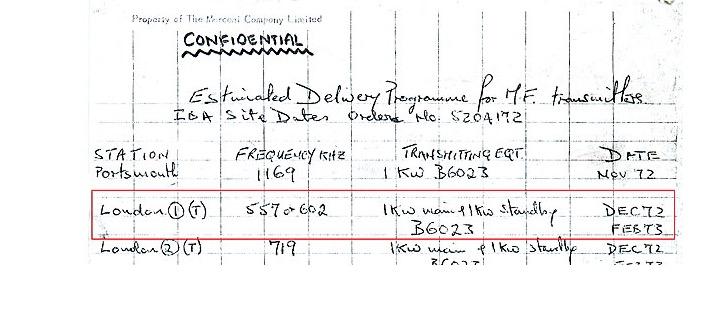 Property of The Marconi Company Limited
CONFIDENTIAL
Estimated Delivery Programme for M.F. transmitters
IBA Site Dates Orders No. S204172
STATION FREQUENCY KHZ TRANSMITTING EQT. DATE
Portsmouth 1169 1 KW B6023 NOV 72
London ① (T) 557 or 602 1KW main & 1KW standby DEC 72
B6023 FEB 73
London ② (T) 719 1KW main & 1KW standby DEC 72